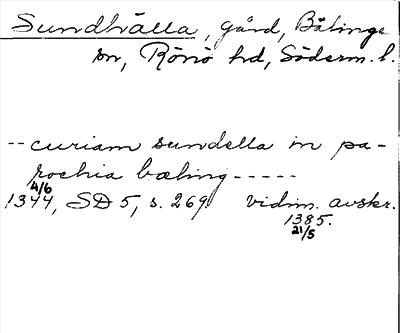 Sundhälla, gård, Bälinge
sn, Rönö hd, Söderm. l.
-- curiam sundella in pa-
rochia bæling -----
4/6
1344, SD 5, s. 269. vidim. avskr.
1385.
21/5